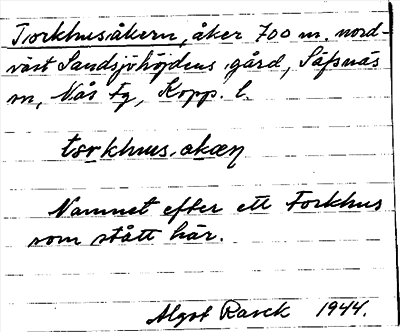 Torkhusåkern, åker 700 m. nord-
väst Sandsjöhöjdens gård, Säfsnäs
sn, Nås fg, Kopp. l.
torkhus.åkæɳ
Namnet efter ett Torkhus
som stått här.
Algot Rasck 1944.